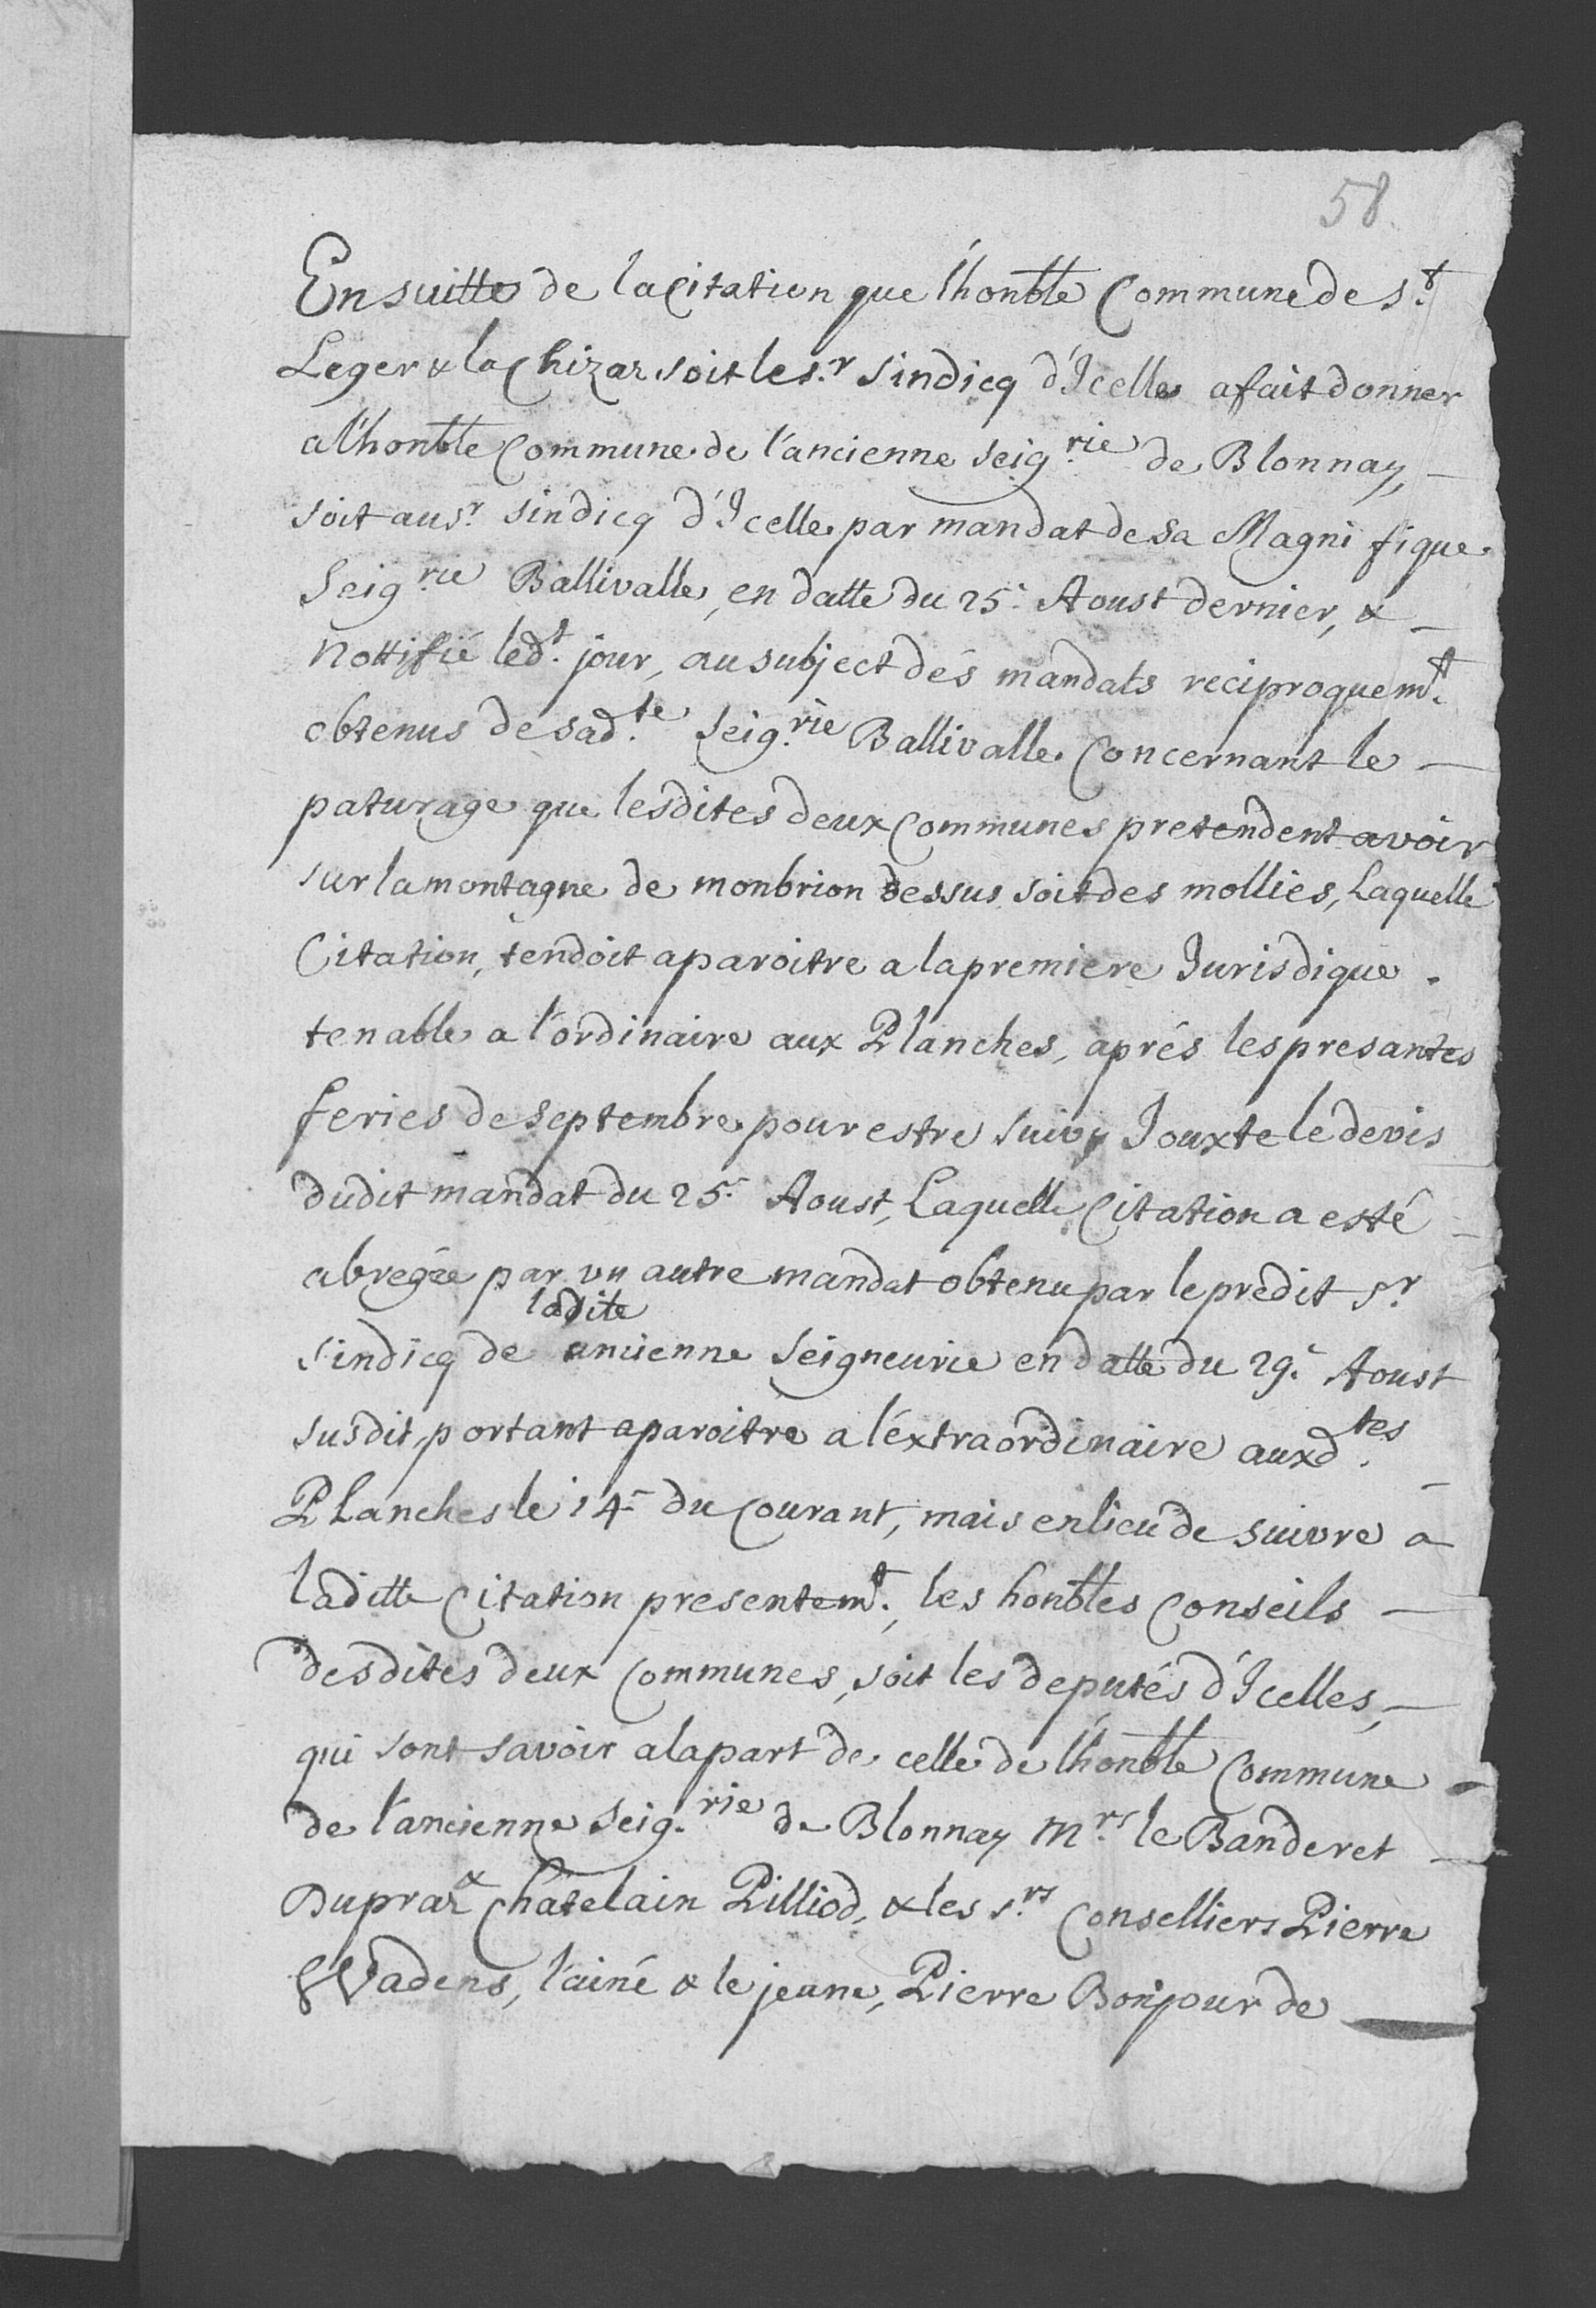 58
Ensuitte de la Citation que l'honble Commune de St.
Leger & la Chizaz soit le sr. sindicq d'Icelle a fait donner
a l'honble Commune de l'ancienne seig.rie de Blonnay,
soit au sr. sindicq d'Icelle par mandat de sa Magnifique
Seig.rie Ballivalle, en datte du 25e. Aoust dernier, &
nottifié led.t jour, au subject dés mandats reciproquemt.
obtenus de sad.te seig.rie Ballivalle Concernant le
paturage que lesdites deux Communes pretendent avoir
sur la montagne de monbrion dessus soit des mollies, Laquelle
Citation, tendoit a paroitre a la premiere Jurisdique
tenable a l'ordinaire aux Planches, aprés les presantes
feries de septembre pour estre suivy Jouxte le devis
dudit mandat du 25e. Aoust, Laquelle Citation a esté
abregée par un autre mandat obtenu par le prédit sr.
ladite
sindicq de ancienne seigneurie en datte du 29e. Aoust
susdit, portant aparoitre a l'éxtraordinaire auxd.tes
Planches le 14e du Courant, mais en lieu de suivre à
laditte Citation presentemt., les honbles Conseils
desdites deux Communes, soit les deputés d'Icelles,
qui sont savoir a la part de celle de l'honble Commune
de l'ancienne seig.rie de Blonnay Mrs. le Banderet
Dupraz & Châtelain Pilliod, & les srs. Conselliers Pierre
Vadens, l'ainé & le jeune, Pierre Bonjour de